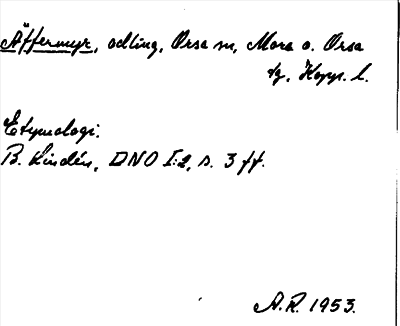 Äffermyr, odling, Orsa sn, Mora o. Orsa
tg, Kopp. l.
Etymologi:
B. Lindén, DNO I:2, s. 3 ff.
A.R. 1953.